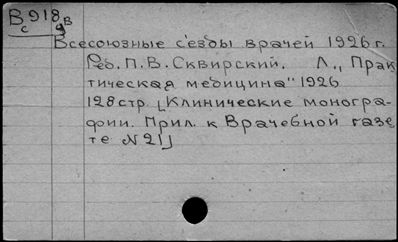 В 918
с 9в
Всесоюзные с'езды врачей 1926 г.
Ред. П. В. Сквирский. Л „Прак
тическая медицина" 1926
128 стр [Клинические моногра-
фии. Прил. к Врачебной газе
те №21]